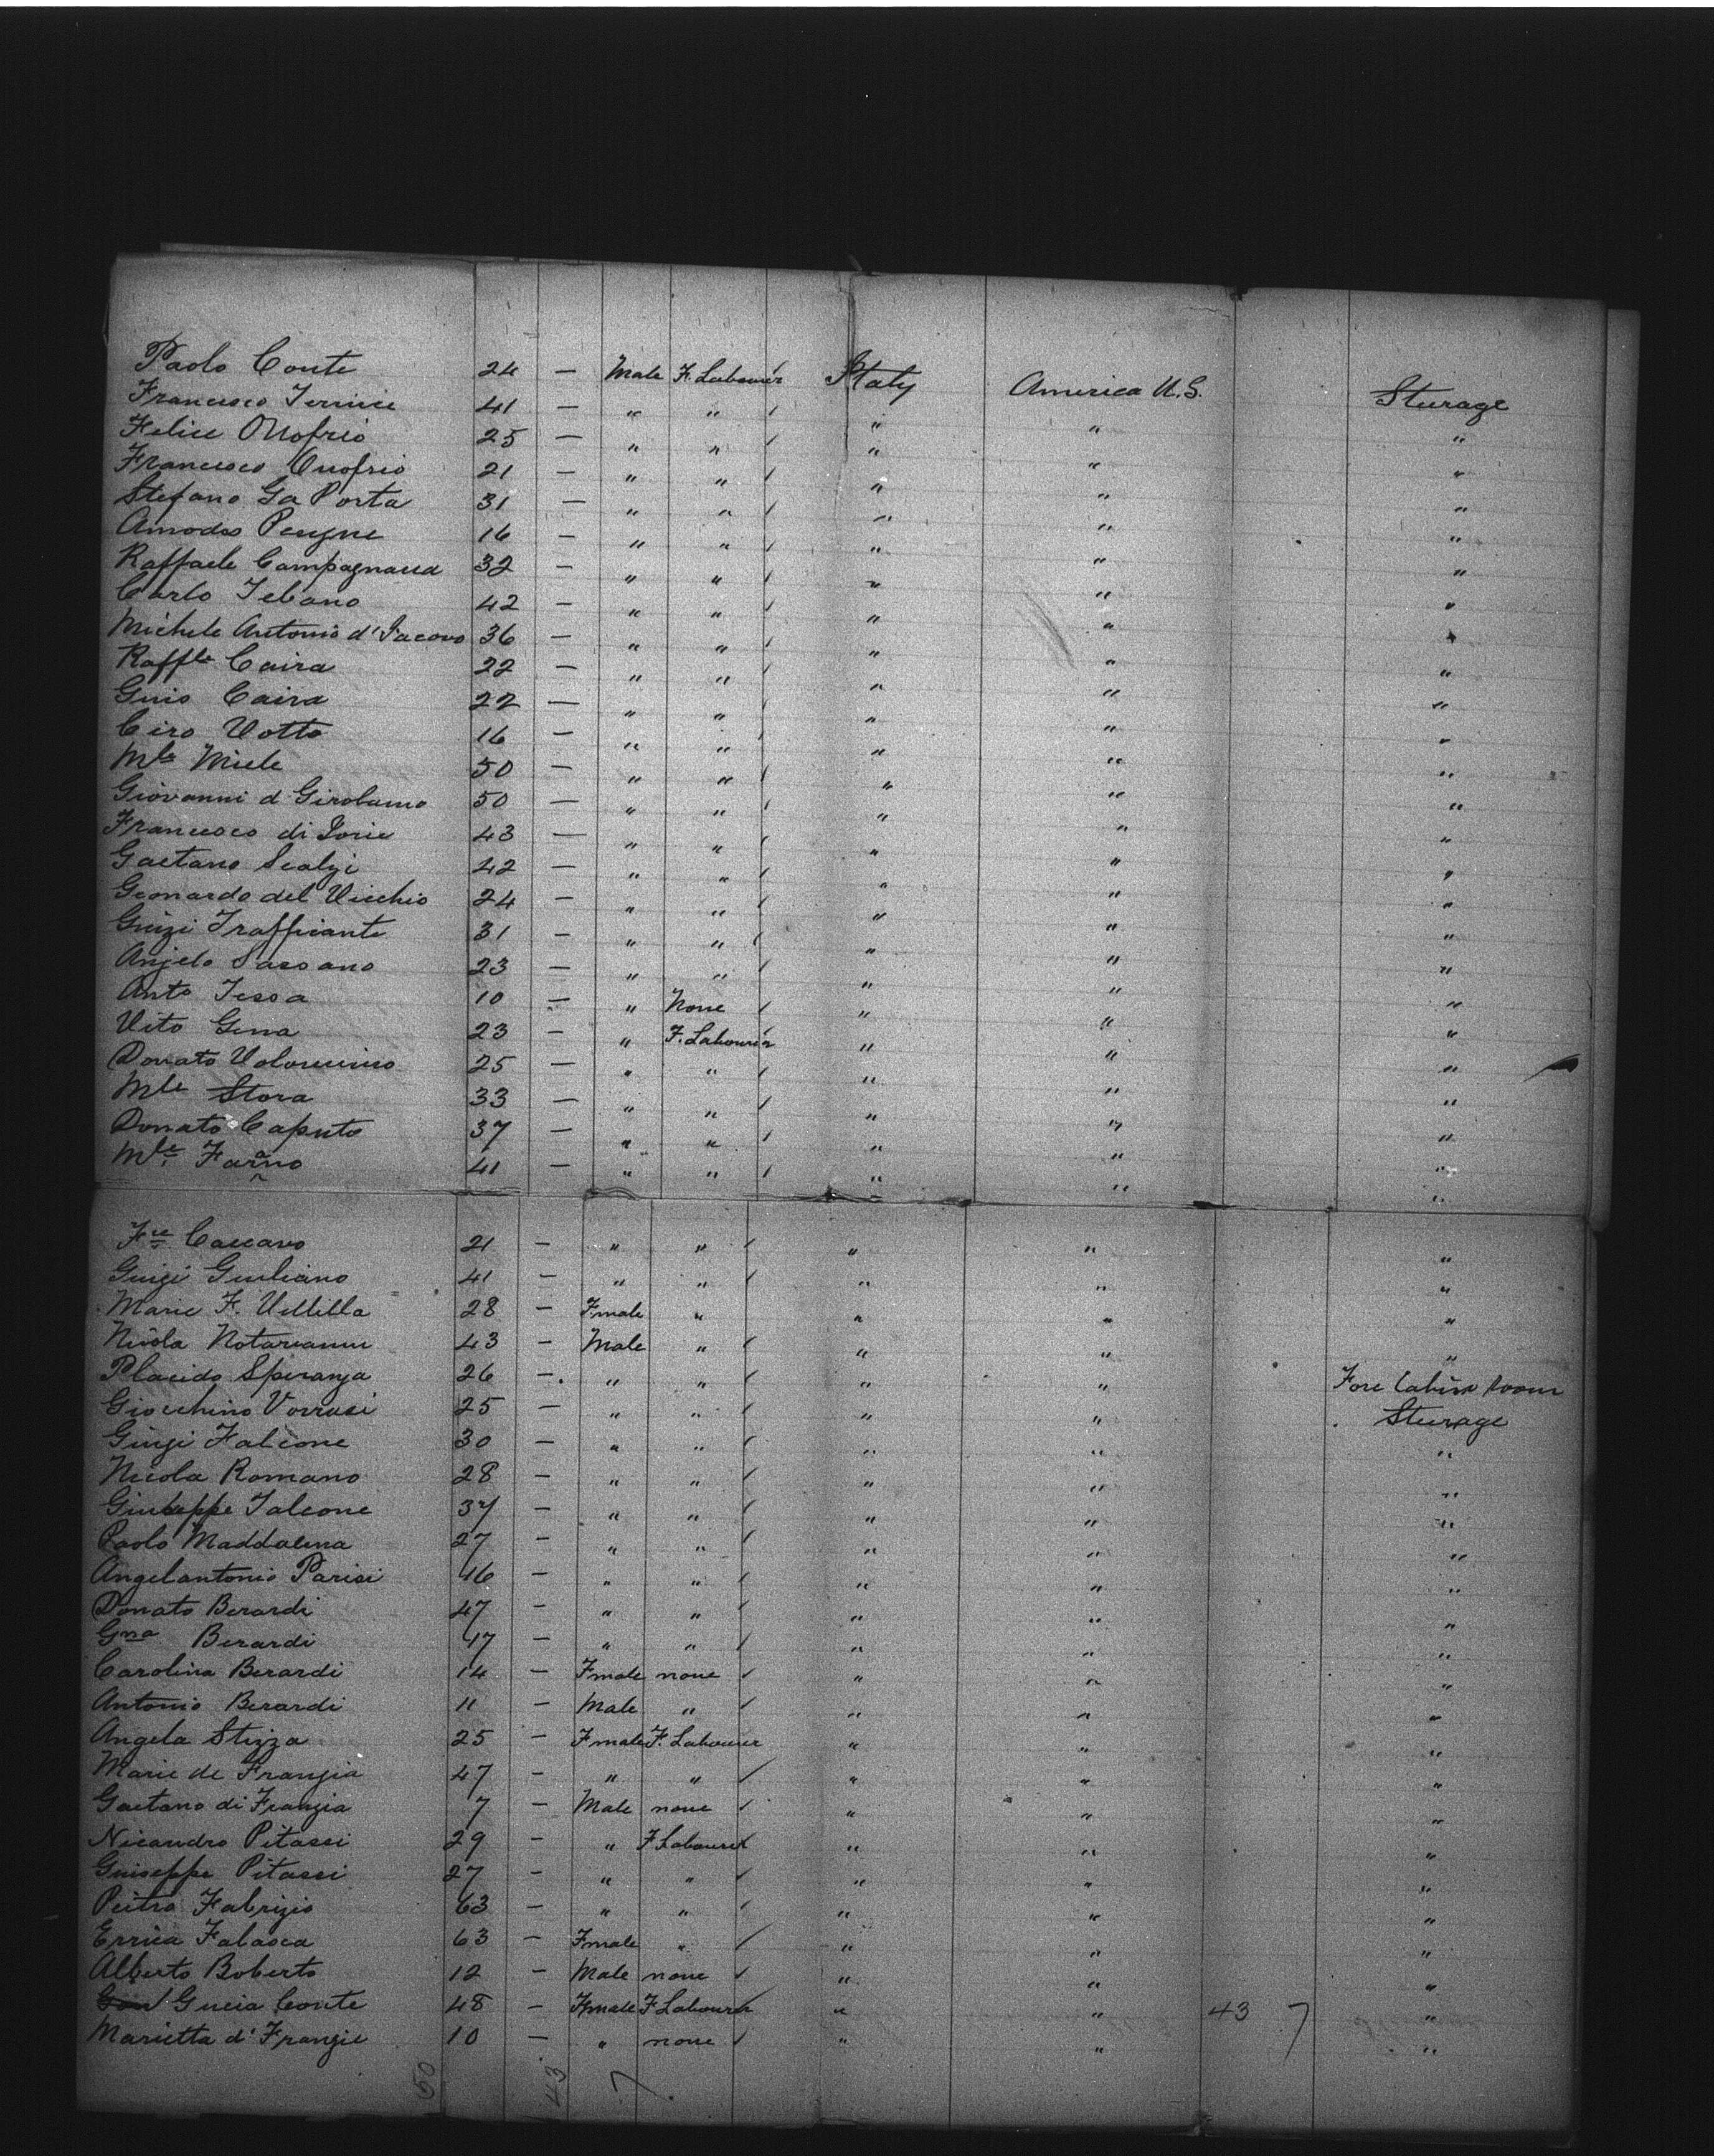 Paolo Conte 24 — Male F. Labourer Italy America U.S. Sturage
Francesco Ternice 41 — " " " " "
Felice Onofrio 25 — " " " " "
Francesco Onofrio 21 — " " " " "
Stefano La Porta 31 — " " " " "
Amodeo 16 — " " " " "
Raffaele Campagnaud 32 — " " " " "
Carlo Tebano 42 — " " " " "
Michele Antonio d'Iacovo 36 — " " " " "
Raffle Caira 22 — " " " " "
Guio Caira 22 — " " " " "
Ciro Votto 16 — " " " " "
Mle Miele 50 — " " " " "
Giovanni d Girolamo 50 — " " " " "
Francesco di Iorie 43 — " " " " "
Gaetano Scalzi 42 — " " " " "
Leonardo del Vicchio 24 — " " " " "
Luigi Trafficante 31 — " " " " "
Angelo Sassano 23 — " " " " "
Anto Tessa 10 — " None " " "
Vito Gena 23 — " F. Labourer " " "
Donato 25 — " " " " "
Mle Stora 33 — " " " " "
Donato Caputo 37 — " " " " "
Mle Farano 41 — " " " " "
Fce Caccavo 21 — " " " " "
Luigi Giuliano 41 — " " " " "
Marie F. Vellilla 28 — Fmale " " " "
Nicola Notarianni 43 — Male " " " "
Placido Speranza 26 — " " " " Fore Cabin room
Giocchino Vorrasi 25 — " " " " Sturage
Luigi Falcone 30 — " " " " "
Nicola Romano 28 — " " " " "
Giuseppe Falcone 37 — " " " " "
Paolo Maddalena 27 — " " " " "
Angelantonio Parisi 46 — " " " " "
Donato Berardi 47 — " " " " "
Gna Berardi 47 — " " " " "
Carolina Berardi 14 — Fmale none " " "
Antonio Berardi 11 — Male " " " "
Angela Stizza 25 — Fmale F. Labourer " " "
Marie de Franzia 47 — " " " " "
Gaetano di Franzia 7 — Male none " " "
Nicandro Pitassi 29 — " F Labourer " " "
Guiseppe Pitassi 27 — " " " " "
Peitro Fabrizio 63 — " " " " "
Errica Falasca 63 — Fmale " " " "
Alberto Boberto 12 — Male none " " "
Lucia Conte 48 — Fmale F Labourer " " 43 7 "
Marietta d'Franzie 10 — " none " " "
50 43 7